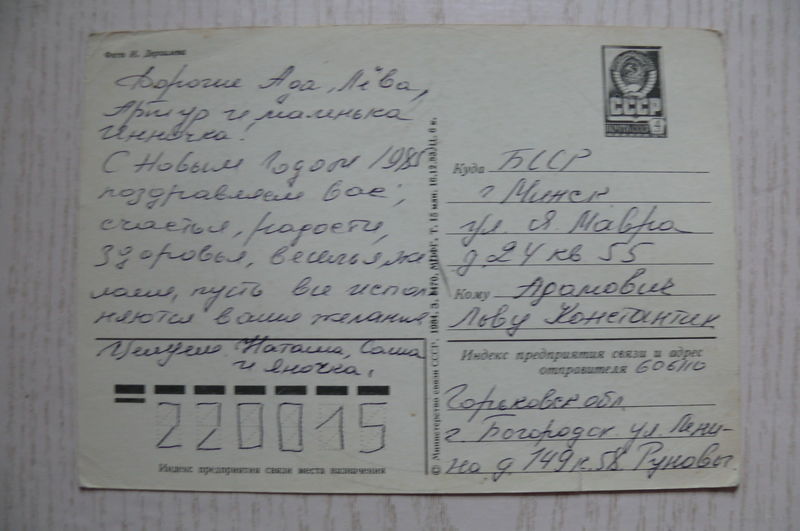 Фото И. Дергилева
Дорогие Ада, Лёва,
Артур и маленька
Инночка!
С Новым Годом 1985
поздравляем Вас,
счастья, радости,
здоровья, веселья же
лаем, пусть все испол
няются ваши желания
Целуем. Наташа, Саша
и Яночка.
220015
Индекс предприятия связи места назначения
© Министерство связи СССР, 1984. З. 8470, МПФГ, Т. 15 млн. 16.12.83. Ц. 6 к.
СССР
ПОЧТА 1983
4
Куда БССР
г Минск
ул. Я. Мавра
д. 24 кв 55
Кому Адамович
Льву Константин
Индекс предприятия связи и адрес
отправителя 606110
Горьковск обл
г. Богородск ул. Лени-
на д. 149 к. 58 Руновы